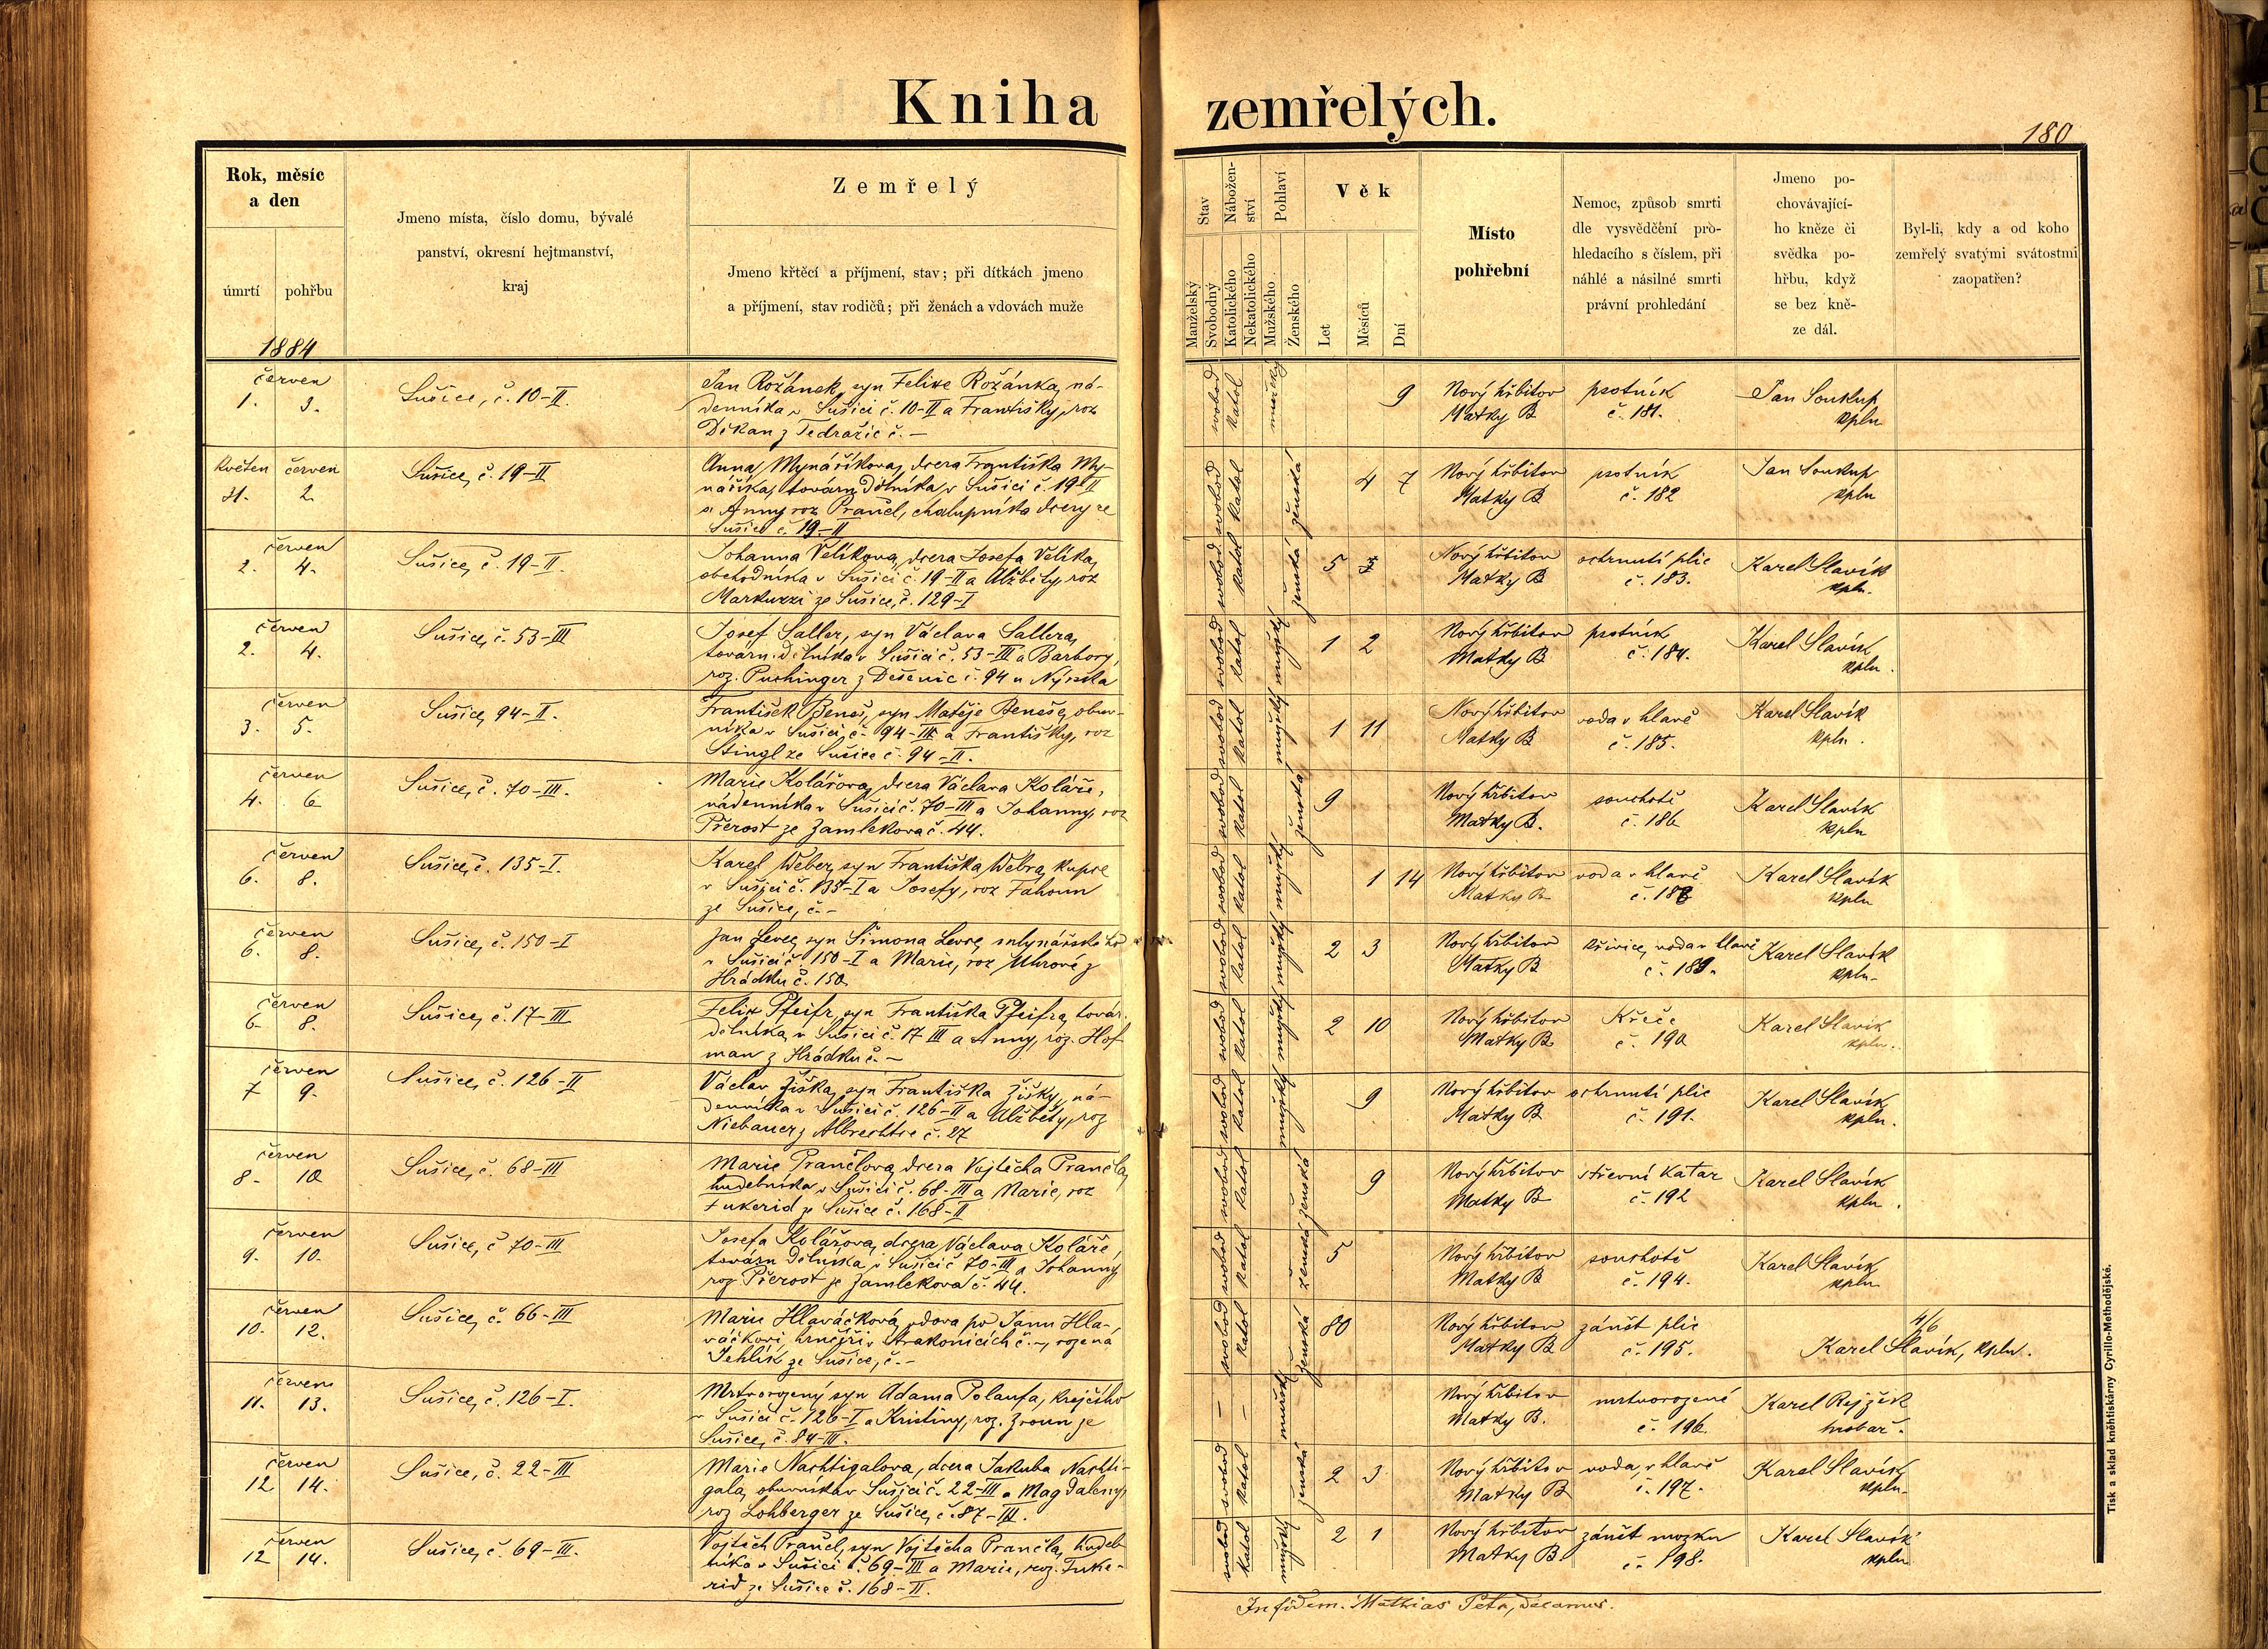 Kniha zemřelých.
180
Rok, měsíc
a den
úmrtí pohřbu
1884
Jmeno místa, číslo domu, bývalé
panství, okresní hejtmanství,
kraj
Zemřelý
Jmeno křtěcí a příjmení, stav; při dítkách jmeno
a příjmení, stav rodičů; při ženách a vdovách muže
Stav
Manželský
Svobodný
Nábožen-
ství
Katolického
Nekatolického
Pohlaví
Mužského
Ženského
Věk
Let
Měsíců
Dní
Místo
pohřební
Nemoc, způsob smrti
dle vysvědčení pro-
hledacího s číslem, při
náhlé a násilné smrti
právní prohledání
Jmeno po-
chovávající-
ho kněze či
svědka po-
hřbu, když
se bez kně-
ze dál.
Byl-li, kdy a od koho
zemřelý svatými svátostmi
zaopatřen?
červen
1. 3.
Sušice, č. 10-II.
Jan Rožánek, syn Felixe Rožánka, ná-
denníka v Sušici č. 10-II a Františky, roz
Děkan z Tedražic č. –
svobod katol mužský
9
Nový hřbitov
Matky B
psotník
č. 181.
Jan Soukup
kpln
květen červen
31. 2.
Sušice, č. 19-II
Anna Mynáříkova, dcera Františka My-
náříka, továrn dělníka v Sušici č. 19-II
a Anny roz Prančl, chalupníka dcery ze
Sušice č. 19-II
svobod katol ženská
4 7
Nový hřbitov
Matky B
psotník
č. 182
Jan Soukup
kpln
červen
2. 4.
Sušice, č. 19-II.
Johanna Velíkova, dcera Josefa Velíka,
obchodníka v Sušici č. 19-II a Alžběty, roz
Markuzzi ze Sušice, č. 129-I
svobod katol ženská
5
Nový hřbitov
Matky B
ochrnutí plic
č. 183.
Karel Slavík
kpln.
červen
2. 4.
Sušice, č. 53-III
Josef Saller, syn Václava Sallera,
továrn. dělníka v Sušici č. 53-III a Barbory,
roz. Puchinger z Dešenic č. 94 u Nýrska
svobod katol mužský
1 2
Nový hřbitov
Matky B
psotník
č. 184.
Karel Slavík
kpln.
červen
3. 5.
Sušice, 94-II.
František Beneš, syn Matěje Beneše, obuv-
níka v Sušici, č. 94-III a Františky, roz
Stingl ze Sušice č. 94-II.
svobod katol mužský
1 11
Nový hřbitov
Matky B
voda v hlavě
č. 185.
Karel Slavík
kpln.
červen
4. 6
Sušice, č. 70-III.
Marie Kolářova, dcera Václava Koláře,
nádenníka v Sušici č. 70-III a Johanny, roz
Přerost ze Zamlekova č. 44.
svobod katol ženská
9
Nový hřbitov
Matky B.
souchotě
č. 186
Karel Slavík
kpln
červen
6. 8.
Sušice, č. 135-I.
Karel Weber, syn Františka Webra, kupce
v Sušici č. 135-I a Josefy, roz Fahoun
ze Sušice, č. –
svobod katol mužský
1 14
Nový hřbitov
Matky B
voda v hlavě
Karel Slavík
kpln
červen
6. 8.
Sušice, č. 150-I
Jan Levec, syn Šimona Levce, mlynářského
v Sušici č. 150-I a Marie, roz Uhrové z
Hrádku č. 150
svobod katol mužský
2 3
Nový hřbitov
Matky B
křivice, voda v hlavě
č. 189.
Karel Slavík
kpln.
červen
6. 8.
Sušice, č. 17-III
Felix Pfeifr, syn Františka Pfeifra, továr.
dělníka, v Sušici č. 17 III a Anny, roz. Hof
man z Hrádku č. –
svobod katol mužský
2 10
Nový hřbitov
Matky B
Křeče
č. 190
Karel Slavík
kpln.
červen
7 9.
Sušice, č. 126-II
Václav Žiška, syn Františka Žišky, ná-
denníka v Sušici č. 126-II a Alžběty, roz
Niebauer z Albrechtic č. 27
svobod katol mužský
9
Nový hřbitov
Matky B
ochrnutí plic
č. 191.
Karel Slavík
kpln.
červen
8. 10
Sušice, č. 68-III
Marie Prančlova, dcera Vojtěcha Prančla,
hudebníka v Sušici č. 68-III a Marie, roz
Fukerid ze Sušice č. 168-II
svobod katol ženská
9
Nový hřbitov
Matky B
střevní katar
č. 192
Karel Slavík
kpln.
červen
9. 10.
Sušice, č 70-III
Josefa Kolářova, dcera Václava Koláře,
továrn dělníka v Sušici č 70-III a Johanny
roz. Přerost ze Zamlekova č. 44.
svobod katol ženská
5
Nový hřbitov
Matky B
souchotě
č. 194.
Karel Slavík
kpln
červen
10. 12.
Sušice, č. 66-III
Marie Hlaváčková, vdova po Janu Hla-
váčkovi, hrnčíři v Strakonicích č. –, rozená
Jehlík ze Sušice, č. –
svobod katol ženská
80
Nový hřbitov
Matky B
zánět plic
č. 195.
4/6
Karel Slavík, kpln.
červen
11. 13.
Sušice, č. 126-I.
Mrtvorozený syn Adama Polaufa, krejčího
v Sušici č. 126-I a Kristiny, roz. Zroun ze
Sušice, č. 84-III.
– – mužský
Nový hřbitov
Matky B.
mrtvorozené
č. 196.
Karel Rejžek
hrobař.
červen
12 14.
Sušice, č. 22-III
Marie Nachtigalova, dcera Jakuba Nachti-
gala, obuvníka v Sušici č. 22-III a Magdaleny,
roz Lohberger ze Sušice, č. 87-III.
svobod katol ženská
2 3
Nový hřbitov
Matky B
voda v hlavě
č. 197.
Karel Slavík
kpln.
červen
12 14.
Sušice, č. 69-III.
Vojtěch Prančl, syn Vojtěcha Prančla, hudeb
níka v Sušici č. 69-III a Marie, roz. Fuke-
rid ze Sušice č. 168-II.
svobod katol mužský
2 1
Nový hřbitov
Matky B.
zánět mozku
č. 198.
Karel Slavík
kpln
In fidem. Mathias Petr, decanus.
Tisk a sklad kněhtiskárny Cyrillo-Methodějské.